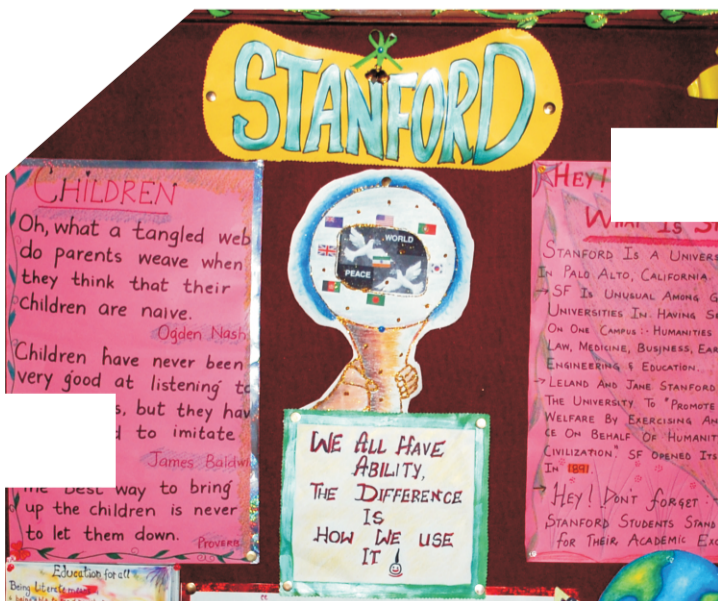 STANFORD
CHILDREN
Oh, what a tangled web
do parents weave when
they think that their
children are naive.
Ogden Nash
Children have never been
very good at listening to
but they
to imitate
James
The best way to bring
up the children is never
to let them down.
PROVERB
Education for all
Being Literate
WORLD
PEACE
WE ALL HAVE
ABILITY,
THE DIFFERENCE
IS
HOW WE USE
IT
HEY!
WHAT IS
STANFORD IS A
IN PALO ALTO, CALIFORNIA.
→ SF IS UNUSUAL AMONG
UNIVERSITIES IN HAVING
ON ONE CAMPUS:- HUMANITIES
LAW, MEDICINE, BUSINESS,
ENGINEERING & EDUCATION.
→ LELAND AND JANE STANFORD
THE UNIVERSITY TO "PROMOTE
WELFARE BY EXERCISING
ON BEHALF OF
CIVILIZATION." SF OPENED
IN 1891.
→ HEY! DON'T FORGET
STANFORD STUDENTS
FOR THEIR ACADEMIC